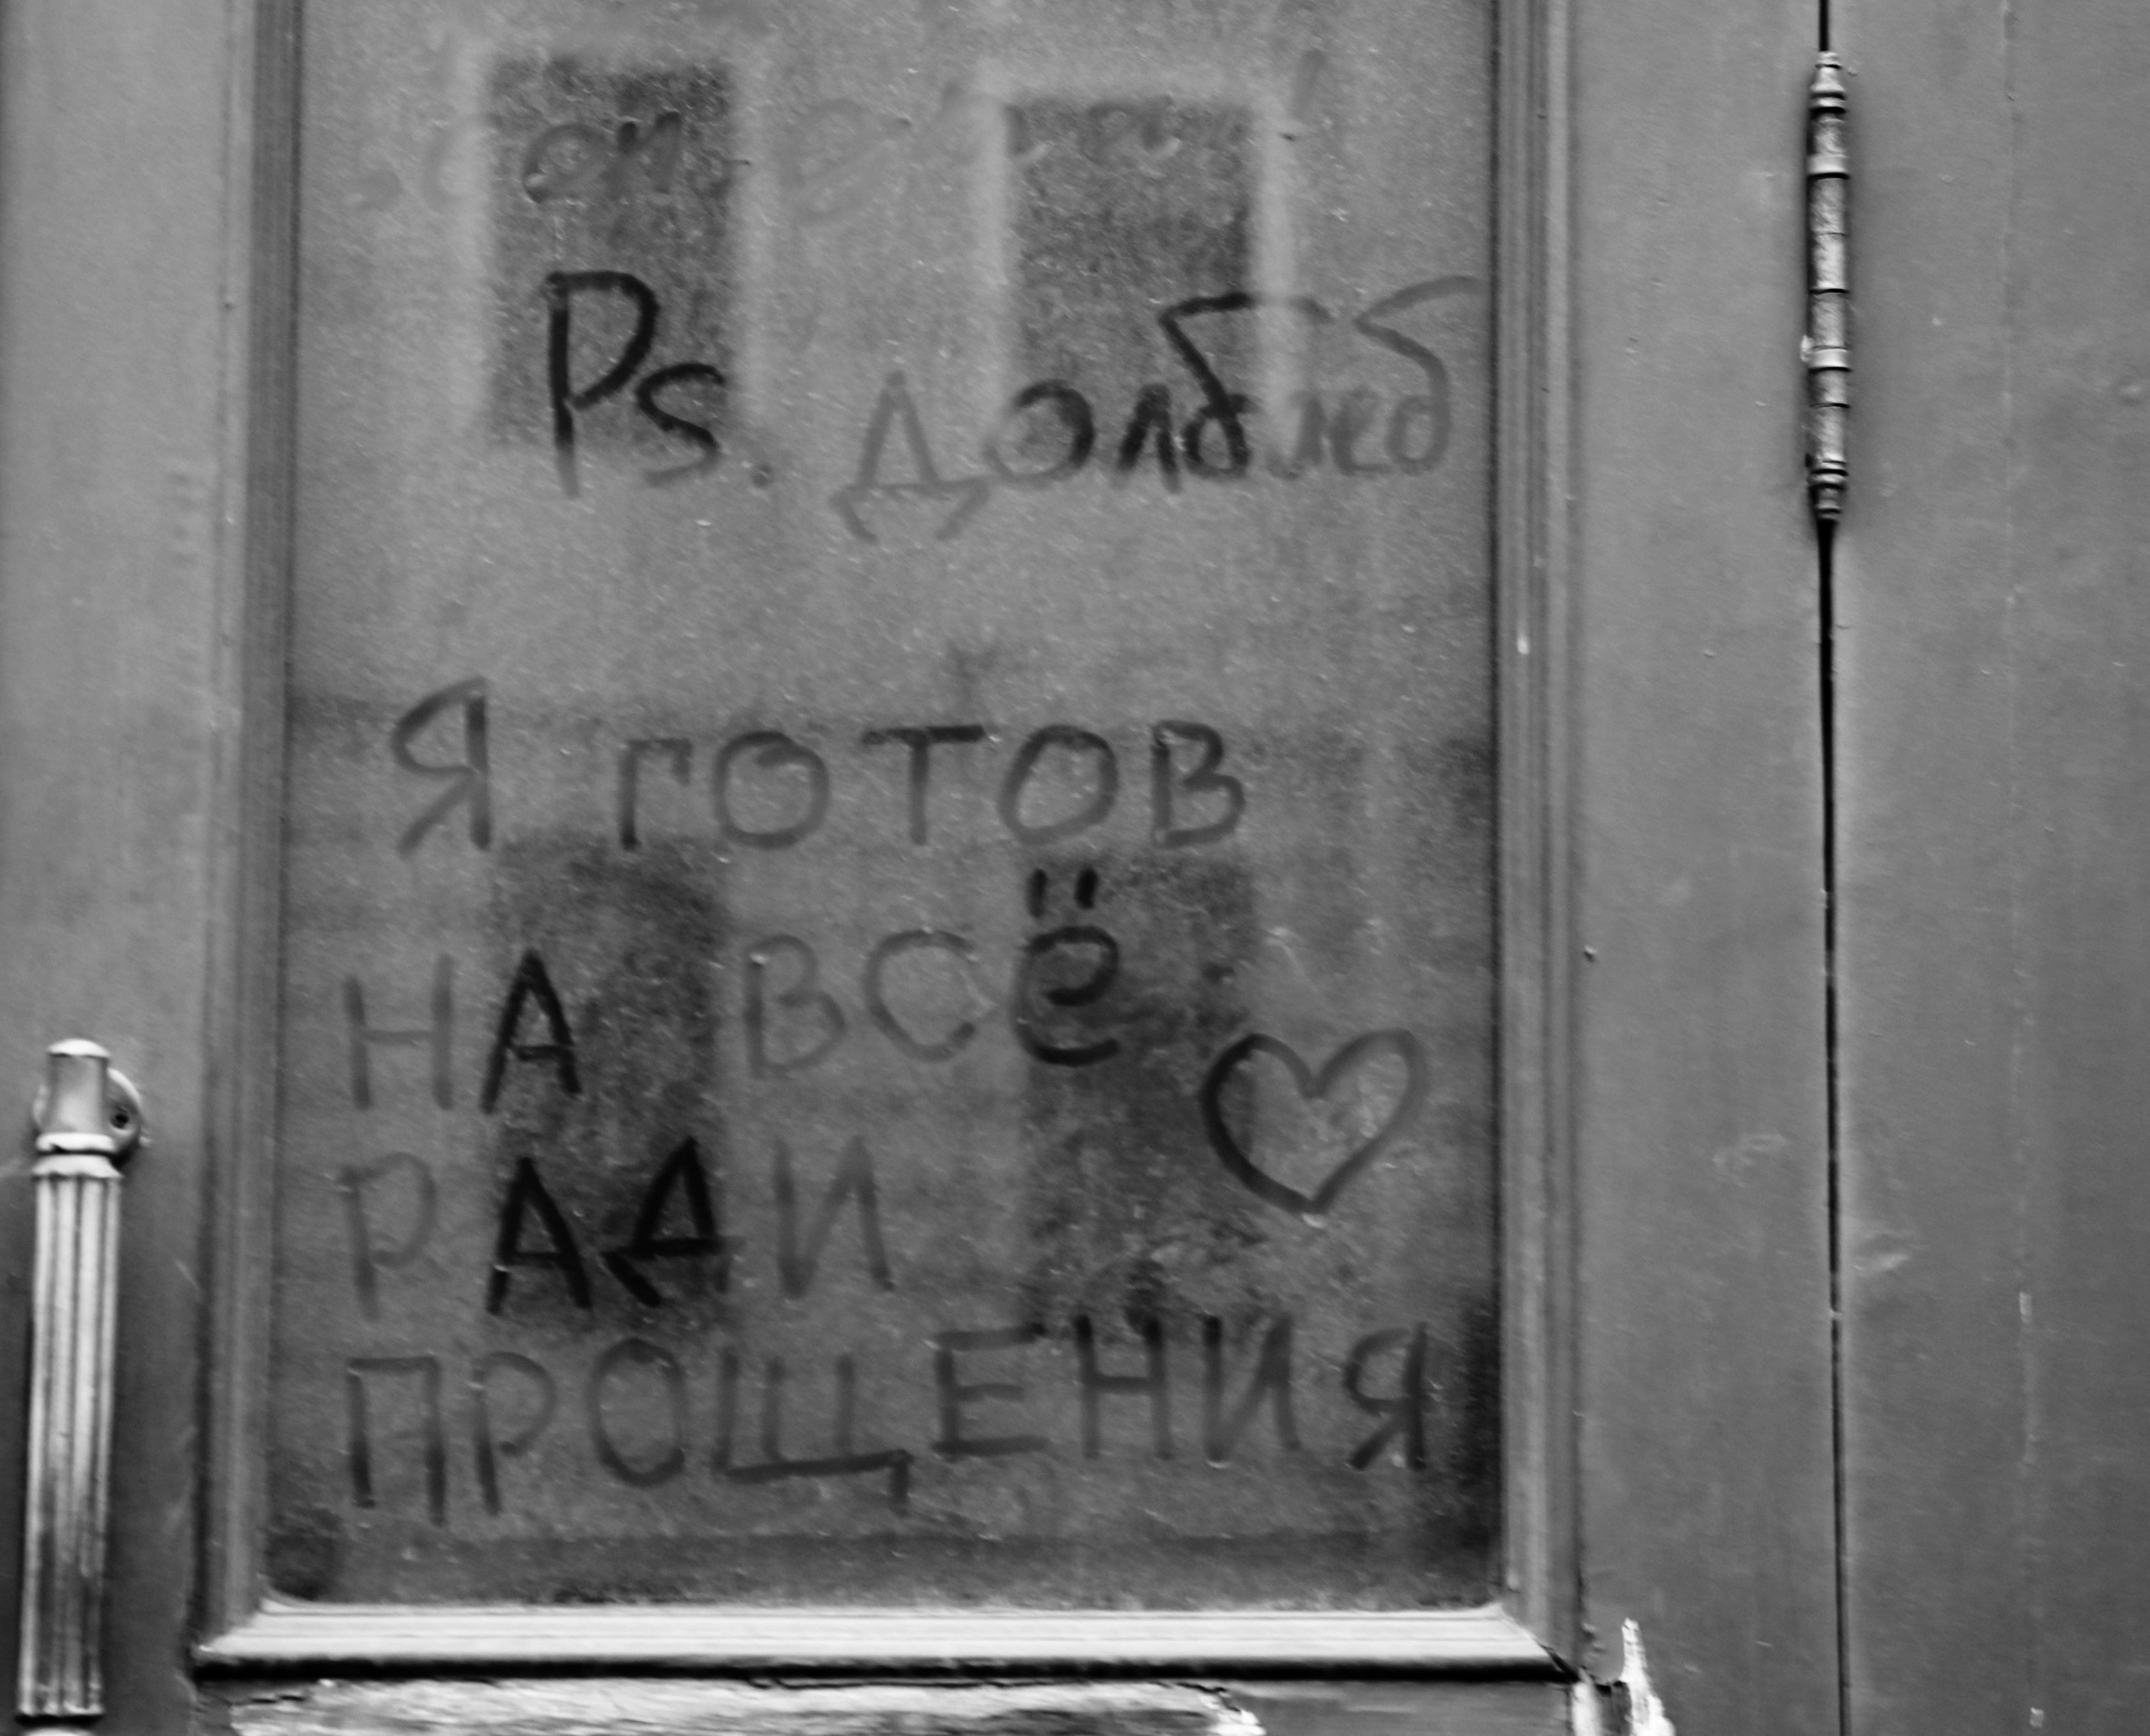 Ps. долбаеб
Я ГОТОВ
НА ВСЁ
РАДИ
ПРОЩЕНИЯ